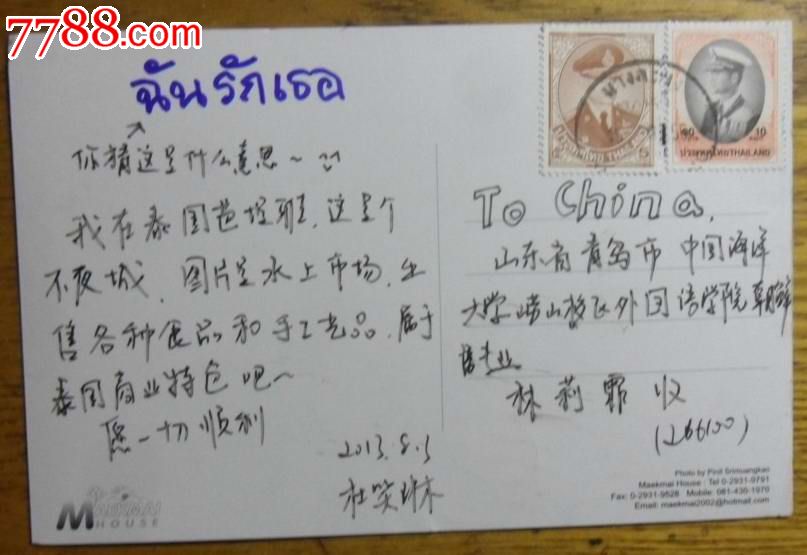 7788.com
ฉันรักเธอ
你猜这是什么意思～
我在泰国芭提雅，这是个
不夜城，图片是水上市场，出
售各种食品和手工艺品，属于
泰国商业特色吧～
愿一切顺利
2013.8.3
杜笑琳
ประเทศไทย THAILAND
10 10
ประเทศไทย THAILAND
To China,
山东省青岛市 中国海洋
大学崂山校区外国语学院朝鲜
语专业
林莉霏 收
(266100)
Photo by Pinit Srimuangkao
Maekmai House : Tel 0-2931-9791
Fax: 0-2931-9528 Mobile: 081-430-1970
Email: maekmai2002@hotmail.com
MAEKMAI
HOUSE